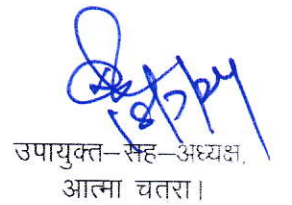 18/7/24
उपायुक्त–सह–अध्यक्ष,
आत्मा चतरा।